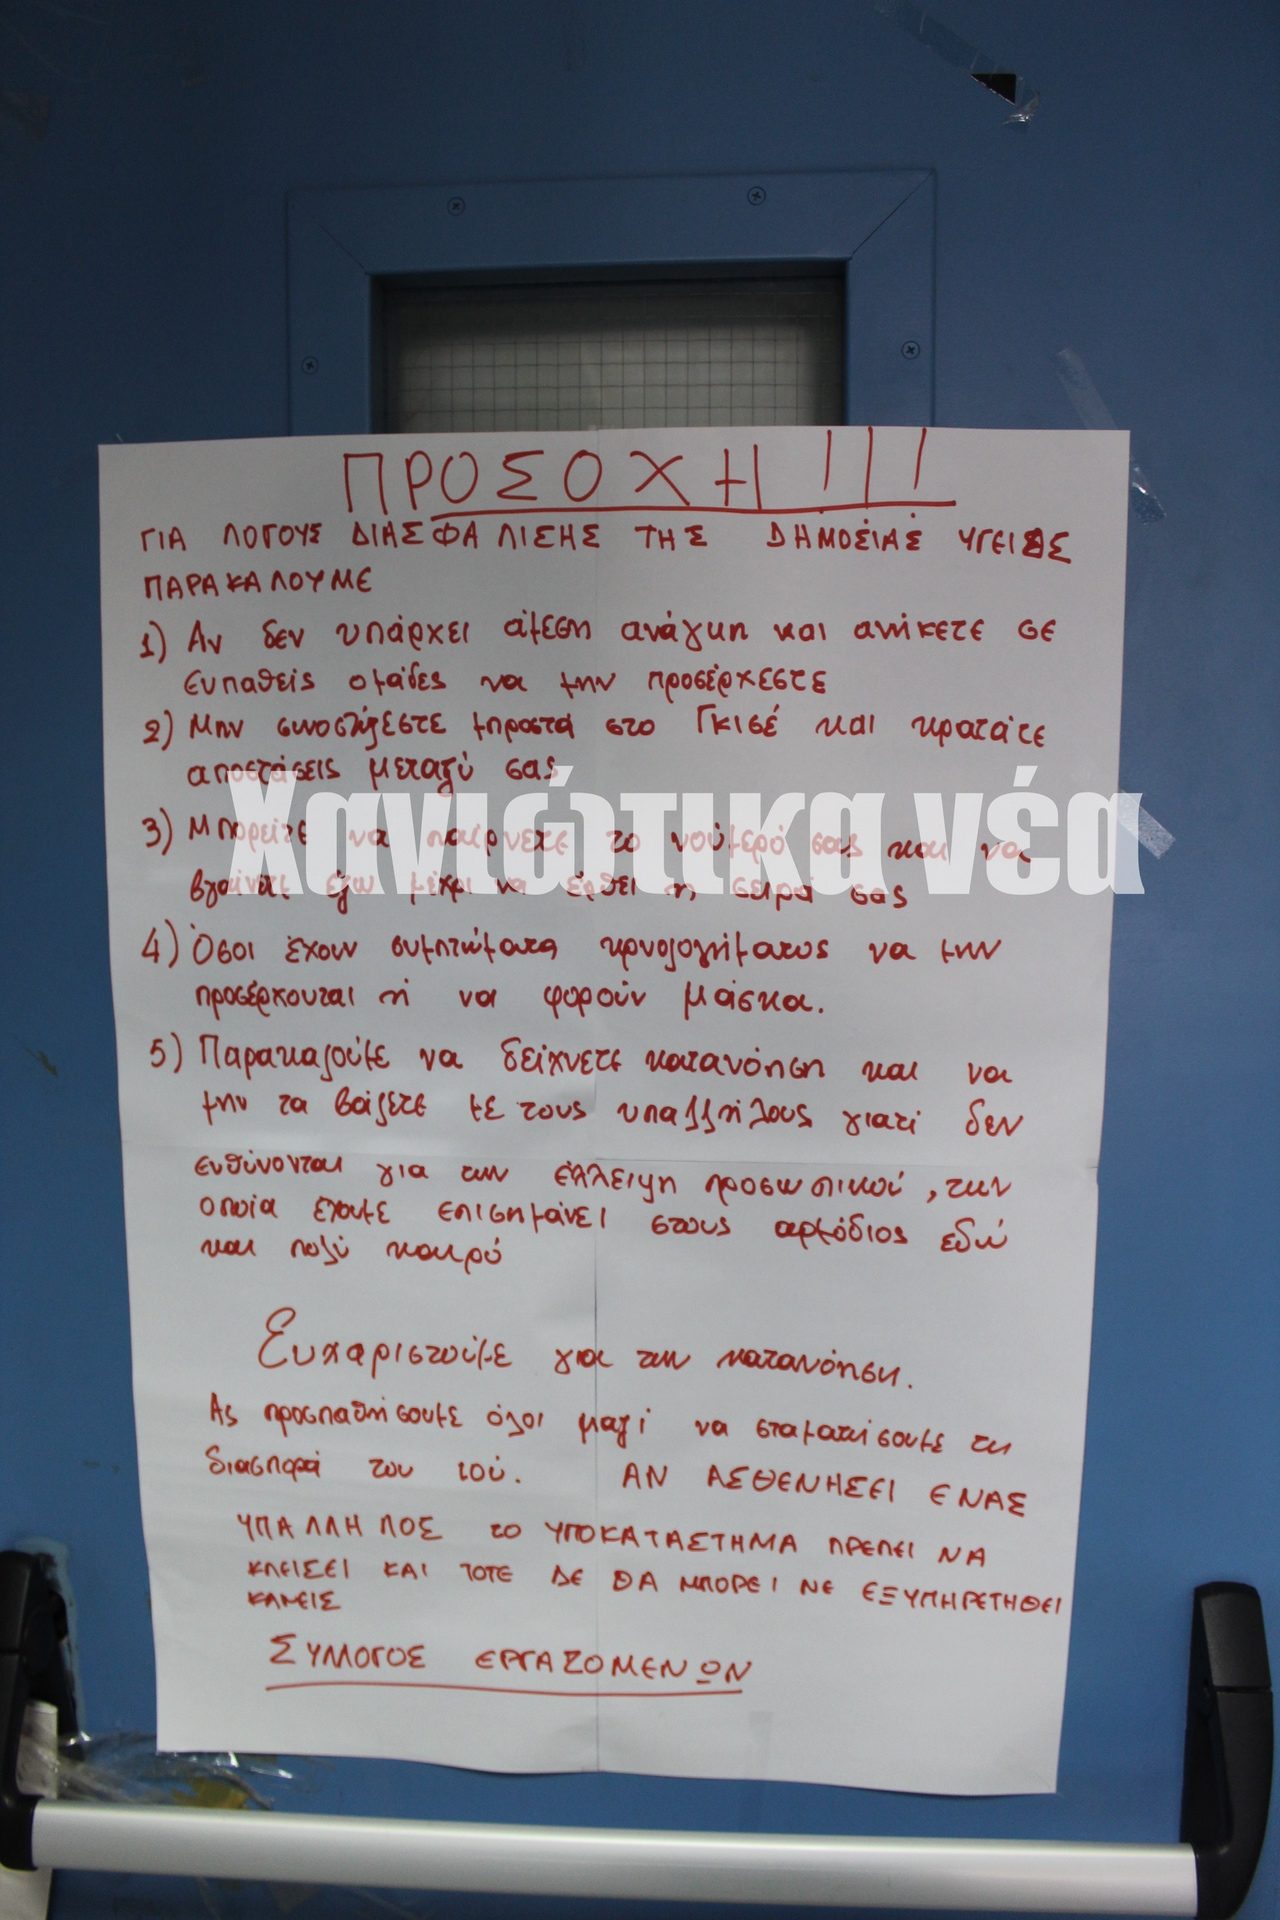 ΠΡΟΣΟΧΗ!!!
ΓΙΑ ΛΟΓΟΥΣ ΔΙΑΣΦΑΛΙΣΗΣ ΤΗΣ ΔΗΜΟΣΙΑΣ ΥΓΕΙΑΣ
ΠΑΡΑΚΑΛΟΥΜΕ
1) Αν δεν υπάρχει άμεση ανάγκη και ανήκετε σε
ευπαθείς ομάδες να μην προσέρχεστε
2) Μην συνοστίζεστε μπροστά στο Γκισέ και κρατάτε
αποστάσεις μεταξύ σας
Χανιώτικα νέα
3) Μπορείτε να παίρνετε το νούμερό σας και να
βγαίνετε έξω μέχρι να έρθει η σειρά σας
4) Όσοι έχουν συμπτώματα κρυολογήματος να μην
προσέρχονται ή να φορούν μάσκα.
5) Παρακαλούμε να δείχνετε κατανόηση και να
μην τα βάζετε με τους υπαλλήλους γιατί δεν
ευθύνονται για την έλλειψη προσωπικού, την
οποία έχουμε επισημάνει στους αρμόδιος εδώ
και πολύ καιρό
Ευχαριστούμε για την κατανόηση.
Ας προσπαθήσουμε όλοι μαζί να σταματήσουμε τη
διασπορά του ιού. ΑΝ ΑΣΘΕΝΗΣΕΙ ΕΝΑΣ
ΥΠΑΛΛΗΛΟΣ το ΥΠΟΚΑΤΑΣΤΗΜΑ ΠΡΕΠΕΙ ΝΑ
ΚΛΕΙΣΕΙ ΚΑΙ ΤΟΤΕ ΔΕ ΘΑ ΜΠΟΡΕΙ ΝΕ ΕΞΥΠΗΡΕΤΗΘΕΙ
ΚΑΝΕΙΣ
ΣΥΛΛΟΓΟΣ ΕΡΓΑΖΟΜΕΝΩΝ